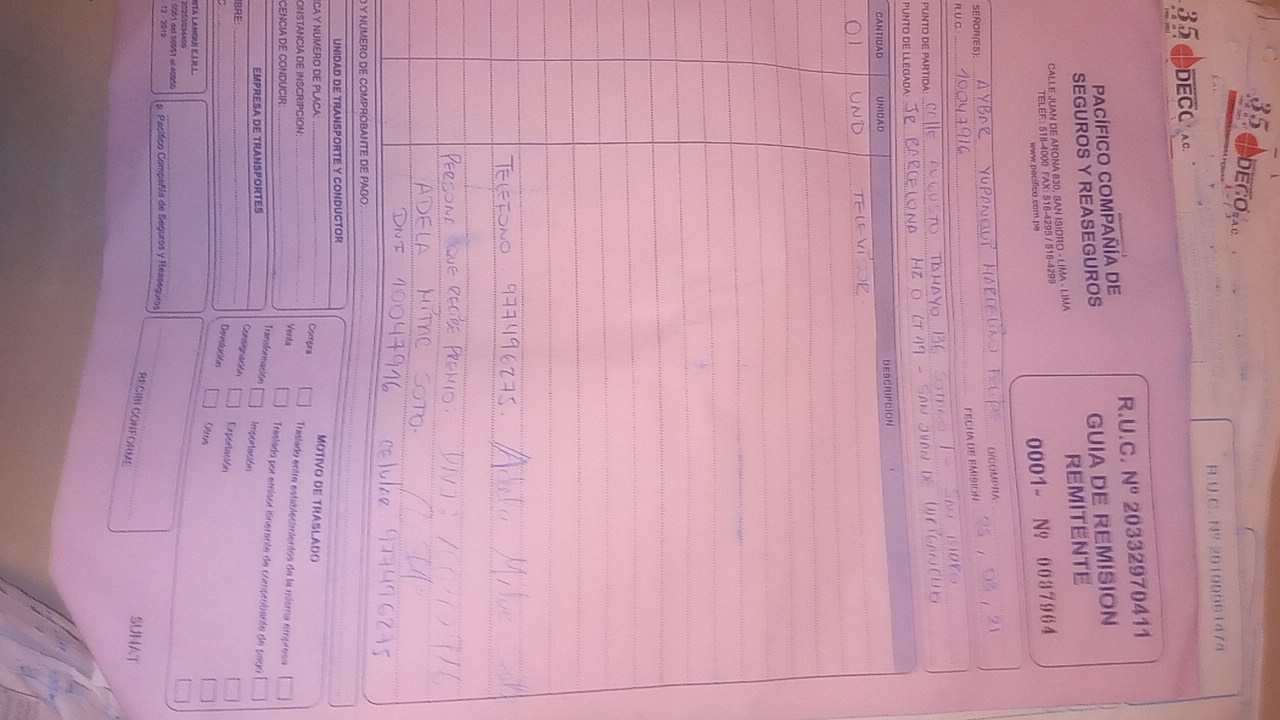 35
DECO S.A.C.
35
DECO S.A.C.
R.U.C. Nº 20100061474
PACÍFICO COMPAÑÍA DE
SEGUROS Y REASEGUROS
CALLE JUAN DE ARONA 830, SAN ISIDRO - LIMA - LIMA
TELEF.: 518-4000 FAX: 518-4295 / 518-4299
www.pacifico.com.pe
R.U.C. Nº 20332970411
GUIA DE REMISION
REMITENTE
0001- Nº 0087964
SEÑOR(ES): AYBAR YUPANQUI MARCELINO FELIPE O/COMPRA 05, 03, 21
R.U.C. 10047916 FECHA DE EMISION
PUNTO DE PARTIDA: Calle AUGUSTO TAMAYO 136 - SAN ISIDRO
PUNTO DE LLEGADA: JR BARCELONA MZ O LT 19 - SAN JUAN DE
CANTIDAD UNIDAD DESCRIPCION
01 UND TELEVISOR
TELEFONO 977496275. Adela Mitac
PERSONA QUE RECIBE PREMIO. DNI
ADELA MITAC SOTO.
DNI 10047916 celular 977496275
O Y NUMERO DE COMPROBANTE DE PAGO:
UNIDAD DE TRANSPORTE Y CONDUCTOR
CA Y NUMERO DE PLACA:
ONSTANCIA DE INSCRIPCION:
CENCIA DE CONDUCIR:
EMPRESA DE TRANSPORTES
BRE:
C.
MOTIVO DE TRASLADO
Compra
Venta
Transformación
Consignación
Devolución
Traslado entre establecimientos de la misma empresa
Traslado por emisor itinerante de comprobante de pago
Importación
Exportación
Otros
p. Pacífico Compañía de Seguros y Reaseguros
RECIBI CONFORME
SUNAT